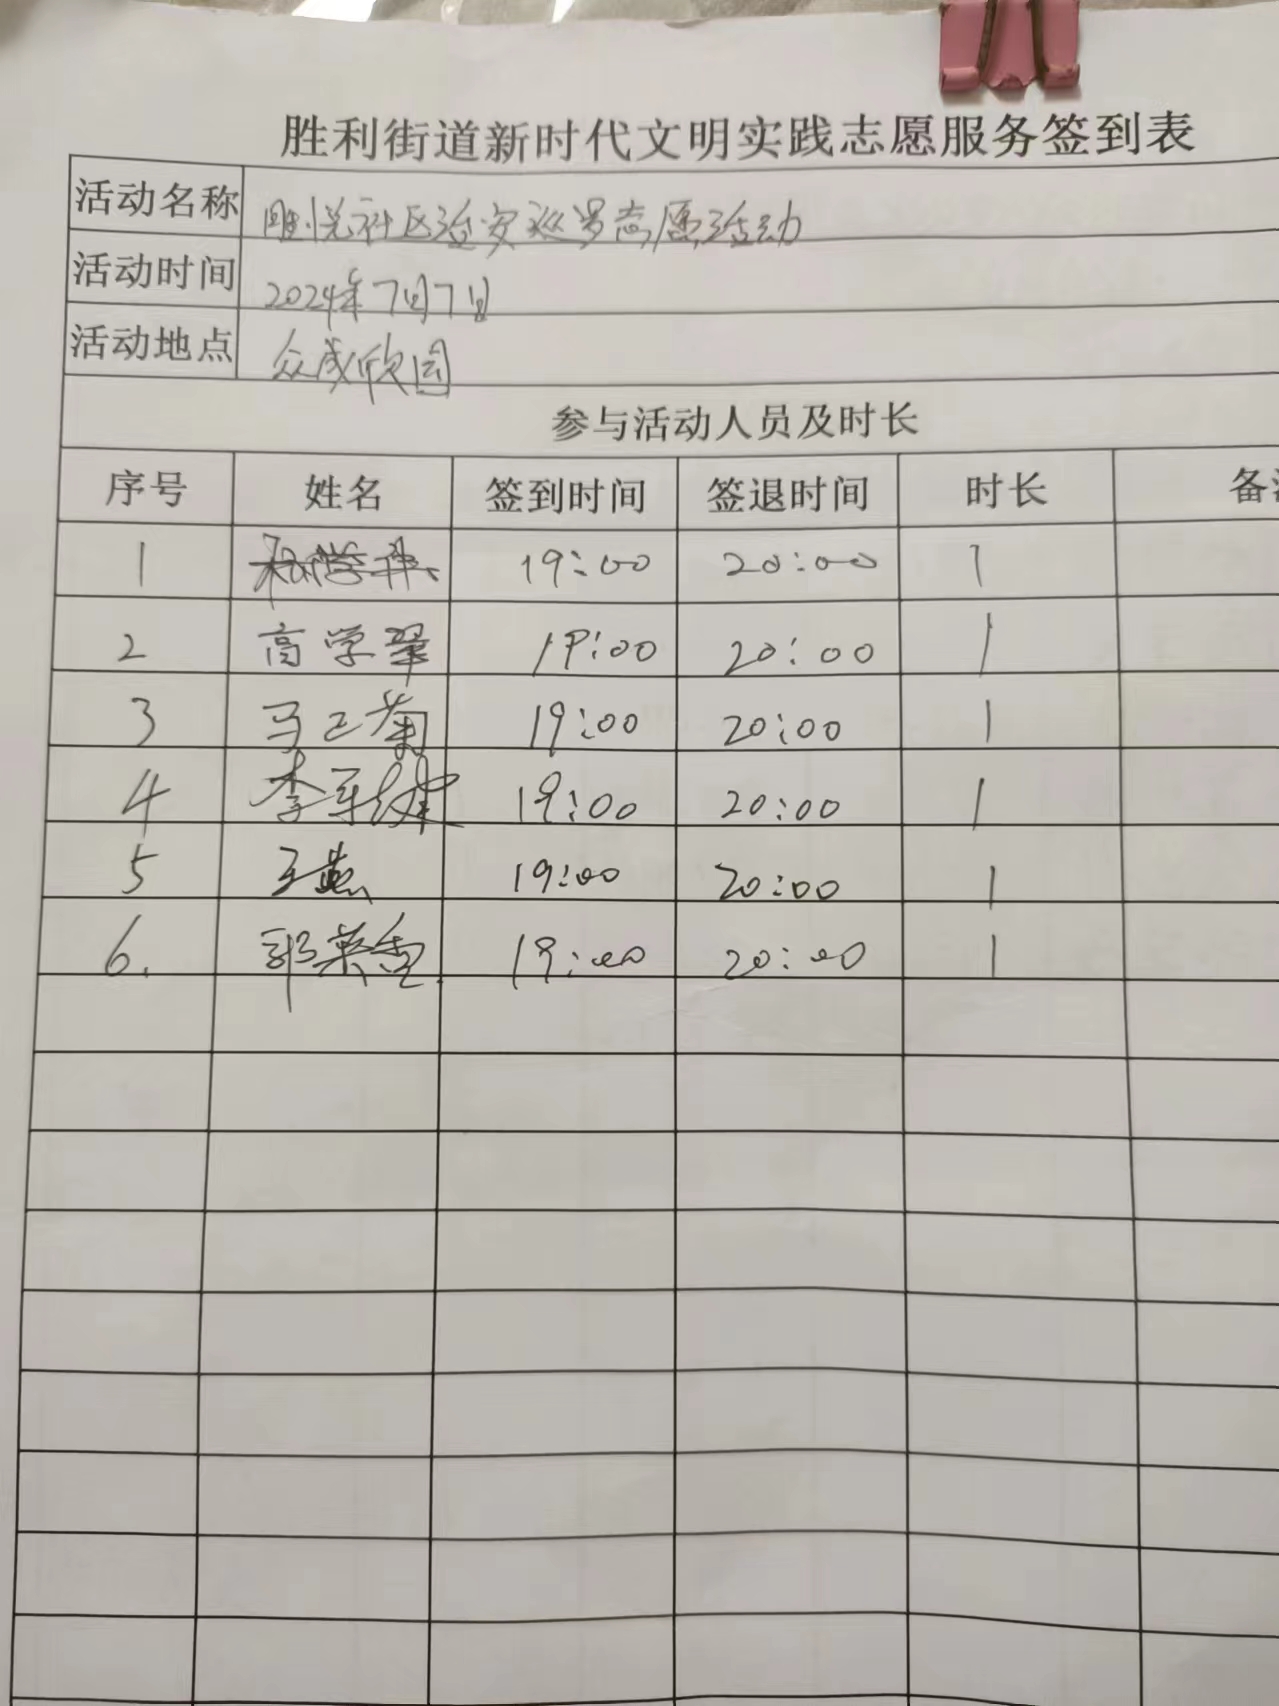 胜利街道新时代文明实践志愿服务签到表
活动名称 悦社区治安巡逻志愿活动
活动时间 2024年7月7日
活动地点 众成欣园
参与活动人员及时长
序号 姓名 签到时间 签退时间 时长 备
1 19:00 20:00 1
2 高学翠 19:00 20:00 1
3 马正菊 19:00 20:00 1
4 李 19:00 20:00 1
5 王燕 19:00 20:00 1
6. 郭英 19:00 20:00 1